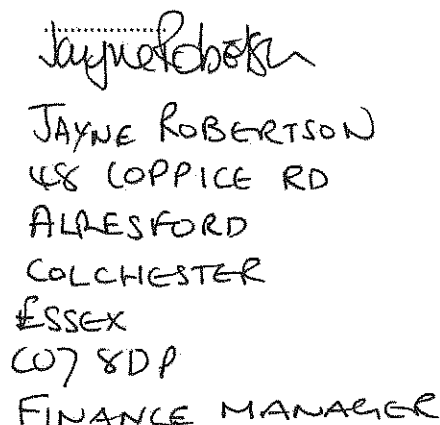 Jayne Robertson
JAYNE ROBERTSON
48 COPPICE RD
ALRESFORD
COLCHESTER
ESSEX
CO7 8DP
FINANCE MANAGER